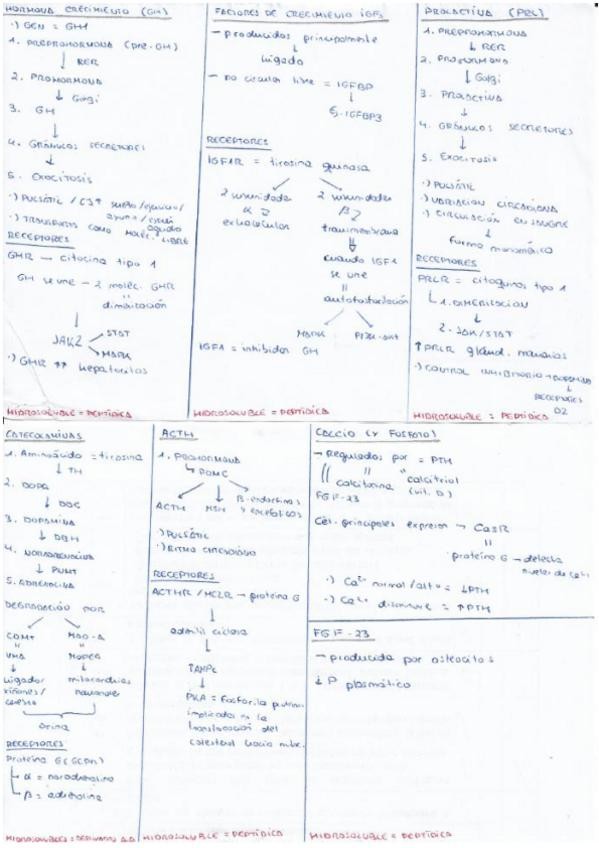 HORMONA CRECIMIENTO (GH)
·) GEN = GH1
1. PREPROHORMONA (pre-GH)
↓ RER
2. PROHORMONA
↓ Golgi
3. GH
↓
4. GRÁNULOS SECRETORES
↓
5. EXOCITOSIS
·) PULSÁTIL / C3↑ sueño/ejercicio/
ayuno/estrés
·) TRANSPORTA COMO MOLÉC. LIBRE
RECEPTORES
GHR → citocina tipo 1
GH se une → 2 moléc. GHR
"
dimerización
↓
JAK2 → STAT
→ MAPK
·) GHR ↑↑ hepatocitos
HIDROSOLUBLE = PEPTÍDICA
FACTORES DE CRECIMIENTO IGFs
- producidos principalmente
↓
hígado
- no circula libre = IGFBP
↓
IGFBP3
RECEPTORES
IGF1R = tirosina quinasa
2 subunidades α
extracelular
2 subunidades β
transmembrana
cuando IGF1
se une
"
autofosforilación
MAPK PI3K-Akt
IGF1 = inhibidor GH
HIDROSOLUBLE = PEPTÍDICA
PROLACTINA (PRL)
1. PREPROHORMONA
↓ RER
2. PROHORMONA
↓ Golgi
3. PROLACTINA
↓
4. GRÁNULOS SECRETORES
↓
5. EXOCITOSIS
·) PULSÁTIL
·) VARIACIÓN CIRCADIANA
·) CIRCULACIÓN EN SANGRE
↓
forma monomérica
RECEPTORES
PRLR = citoquinas tipo 1
1. DIMERIZACION
↓
2. JAK/STAT
↑PRLR gland. mamarias
·) CONTROL INHIBITORIO → DOPAMINA
↓
RECEPTORES
D2
HIDROSOLUBLE = PEPTÍDICA
CATECOLAMINAS
1. Aminoácido = tirosina
↓ TH
2. DOPA
↓ DDC
3. DOPAMINA
↓ DBH
4. NORADRENALINA
↓ PNMT
5. ADRENALINA
DEGRADACIÓN POR
COMT MAO-A
VMA MOPEG
hígado/ mitocondrias
riñones/ neuronales
cerebro
orina
RECEPTORES
Proteína G (GCPR)
α = noradrenalina
β = adrenalina
HIDROSOLUBLES = DERIVADOS AA
ACTH
1. PROHORMONA
↳ POMC
ACTH MSH β-endorfinas
y encefalinas
·) PULSÁTIL
·) RITMO CIRCADIANO
RECEPTORES
ACTHR / MC2R → proteína G
↓
adenil ciclasa
↓
↑AMPc
↓
PKA = fosforila proteínas
implicadas en la
translocación del
colesterol hacia mitoc.
HIDROSOLUBLE = PEPTÍDICA
CALCIO (Y FOSFATO)
→ Regulados por = PTH
calcitonina calcitriol
(vit. D)
FGF-23
Cél. principales expresan → CaSR
"
proteína G → detecta
niveles de Ca²⁺
·) Ca²⁺ normal/alto = ↓PTH
·) Ca²⁺ disminuye = ↑PTH
FGF-23
- producida por osteocitos
↓ P plasmático
HIDROSOLUBLE = PEPTÍDICA